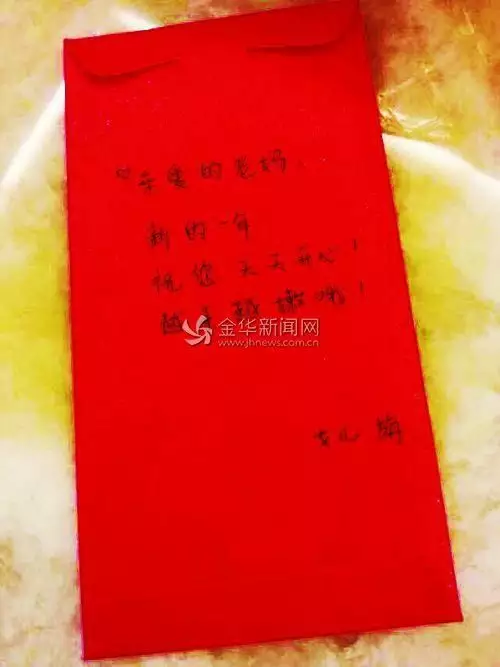 ♡亲爱的老妈：
新的一年
祝您天天开心！
越来越嫩哦！
金华新闻网
www.jhnews.com.cn
女儿